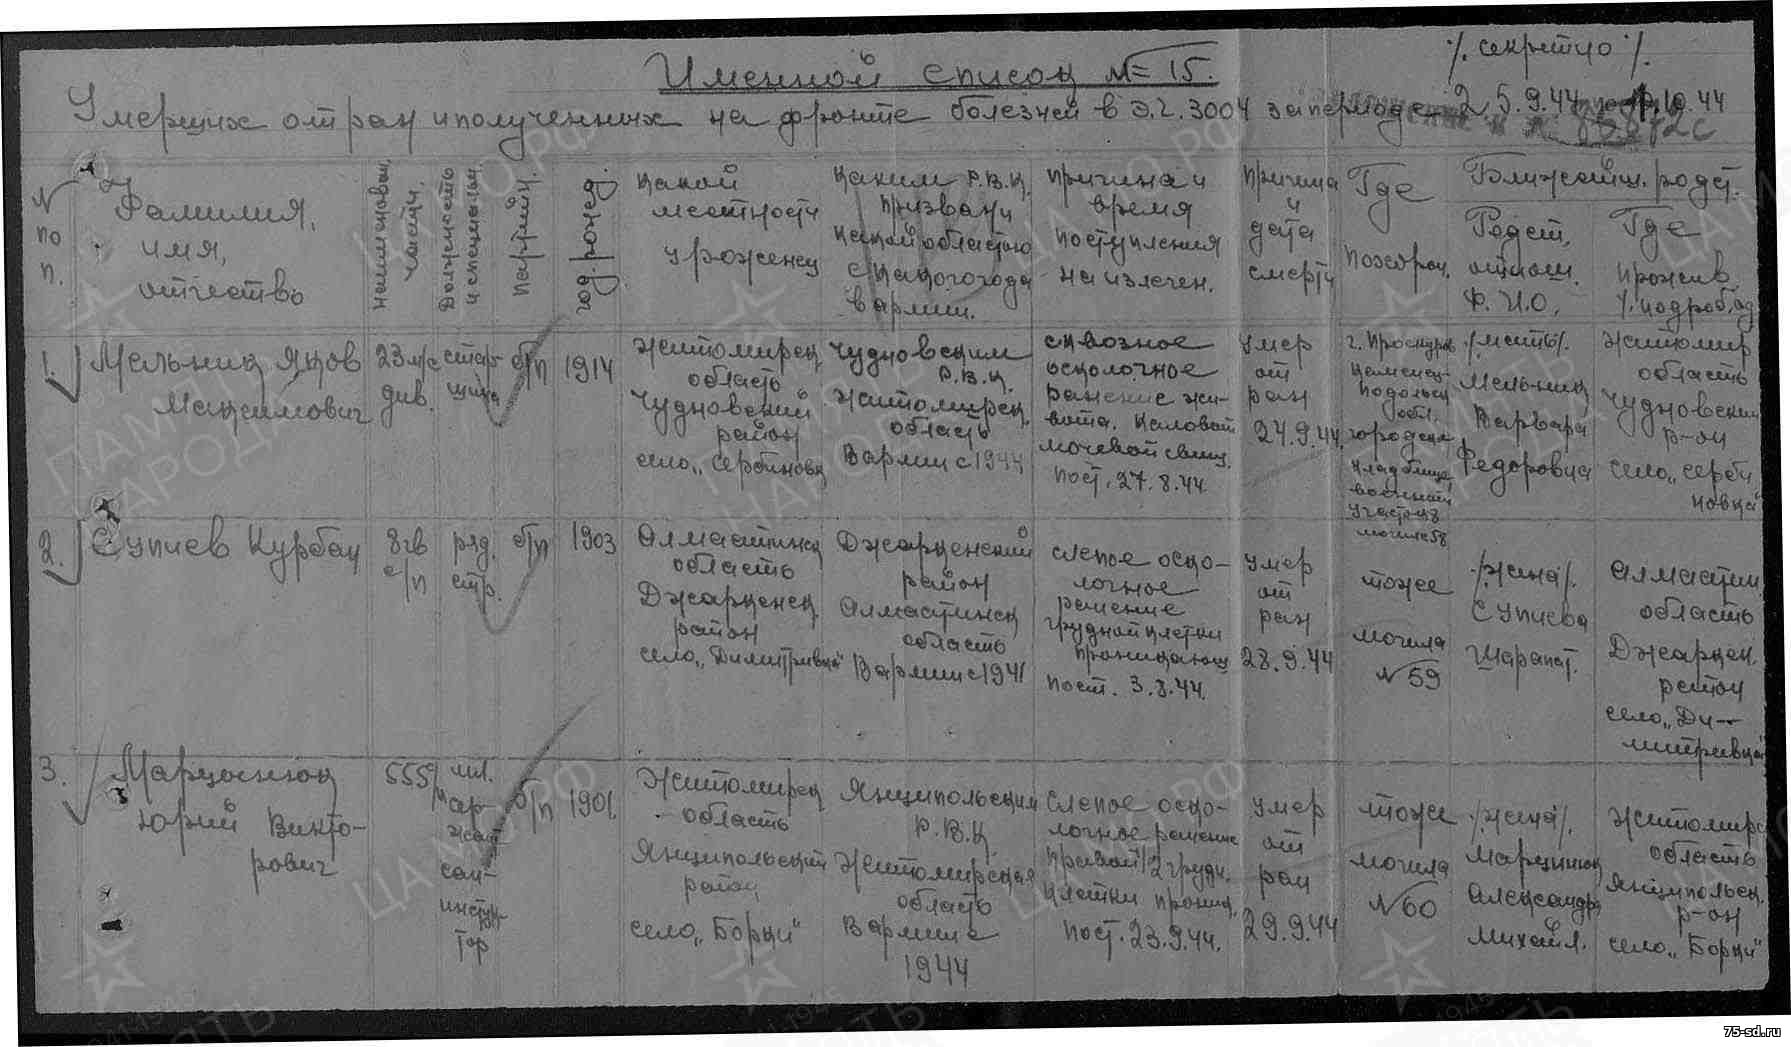 ·/. секретно /.
Именной список №= 15.
Умерших от ран и полученных на фронте болезней в Э.Г. 3004 за период с 25.9.44 по 1.10.44
85872с
№ по п.
Фамилия,
имя,
отчество
Наименован. части.
Должность и специальн.
Партийн.
год. рожден.
какой
местности
уроженец
каким Р.В.К.
призван и
какой областью
с какого года
в армии.
причина и
время
поступления
на излечен.
причина
и
дата
смерти
Где
похорон.
Ближейш. родст.
Родст,
отнош.
Ф. И.О.
Где
прожив.
/. подроб. ад
1.
Мельник Яков
Максимович
23 м/с
див.
стар-
шина
б/п
1914
Житомирск.
область
Чудновский
район
село „Сербиновк
Чудновским
Р.В.К.
Житомирск.
область
В армии с 1944
сквозное
осколочное
ранение жи-
вота. Каловой
мочевой свищ.
Пост. 27.8.44
умер
от
ран
24.9.44.
г. Проскуров
Каменец-
Подольск
обл.
городское
кладбище
военный
участок
могила 58
/мать/.
Мельник
Варвара
Федоровна
Житомир
область
Чудновский
р-он
село „Серби
новка"
2.
Супиев Курбан
8 гв
с/п
ряд.
стр.
б/п
1903
Алмаатинск
область
Джаркенск.
район
село „Димитривка"
Джаркенский
район
Алмаатинск
область
В армии с 1941
слепое оско-
лочное
ранение
грудной клетки
проникающ
пост. 3.8.44.
умер
от
ран
28.9.44
тоже
могила
№ 59
/жена/.
Супиева
Шарапат.
Алмаатин.
область
Джаркен.
район
село „Ди-
митривка"
3.
Марцынюк
Юрий Викто-
рович
555 /
мл.
сер-
жант
сан-
инстук-
тор
б/п
1901.
Житомирск
область
Янципольский
район
село „Борки"
Янципольским
Р.В.К.
Житомирская
область
В армии с
1944
Слепое оско-
лочное ранение
правой 1/2 грудн.
клетки проник.
пост. 23.9.44.
умер
от
ран
29.9.44
тоже
могила
№ 60
/жена/.
Марцинюк
Александра
Михайл.
Житомирс
область
Янципольск.
р-он
село „Борки"
ПАМЯТЬ НАРОДА
ЦАМО РФ
75-sd.ru